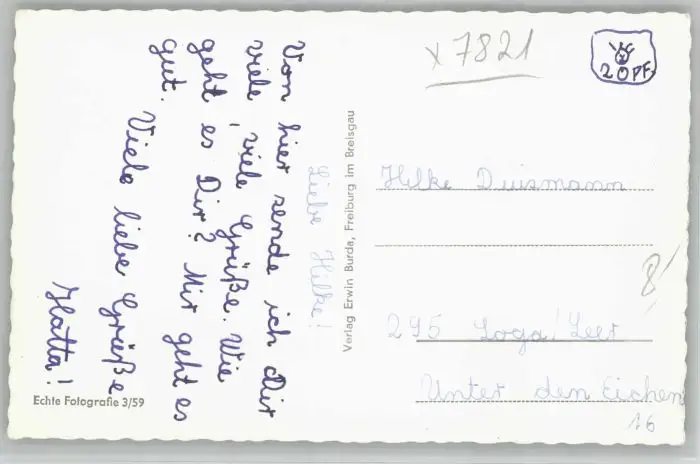 Liebe Hilke!
Von hier sende ich Dir
viele, viele Grüße. Wie
geht es Dir? Mir geht es
gut.
Viele liebe Grüße
Hatta!
Echte Fotografie 3/59
Verlag Erwin Burda, Freiburg im Breisgau
x7821
20 PF.
Hilke Duismann
295 Loga/Leer
Unter den Eichen
16
8/